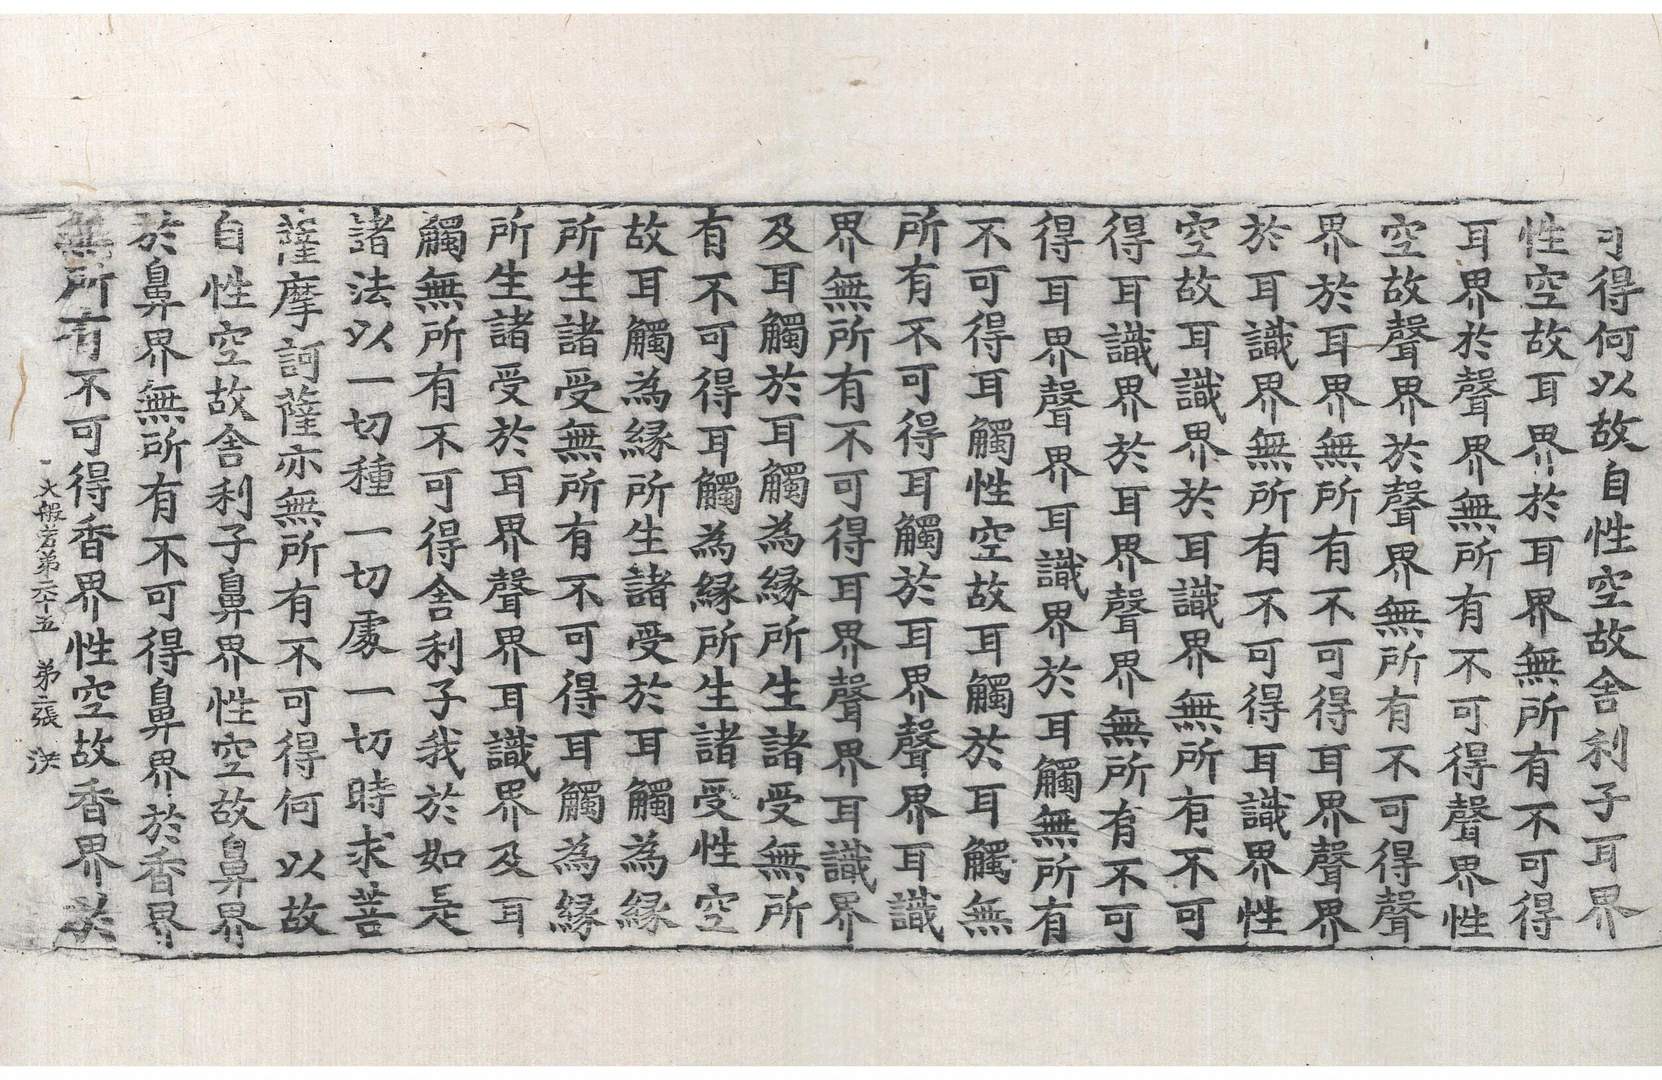 可得何以故自性空故舍利子耳界
性空故耳界於耳界無所有不可得
耳界於聲界無所有不可得聲界性
空故聲界於聲界無所有不可得聲
界於耳界無所有不可得耳界聲界
於耳識界無所有不可得耳識界性
空故耳識界於耳識界無所有不可
得耳識界於耳界聲界無所有不可
得耳界聲界耳識界於耳觸無所有
不可得耳觸性空故耳觸於耳觸無
所有不可得耳觸於耳界聲界耳識
界無所有不可得耳界聲界耳識界
及耳觸於耳觸為緣所生諸受無所
有不可得耳觸為緣所生諸受性空
故耳觸為緣所生諸受於耳觸為緣
所生諸受無所有不可得耳觸為緣
所生諸受於耳界聲界耳識界及耳
觸無所有不可得舍利子我於如是
諸法以一切種一切處一切時求菩
薩摩訶薩亦無所有不可得何以故
自性空故舍利子鼻界性空故鼻界
於鼻界無所有不可得鼻界於香界
無所有不可得香界性空故香界於
大般若弟六十五 弟三張 洪